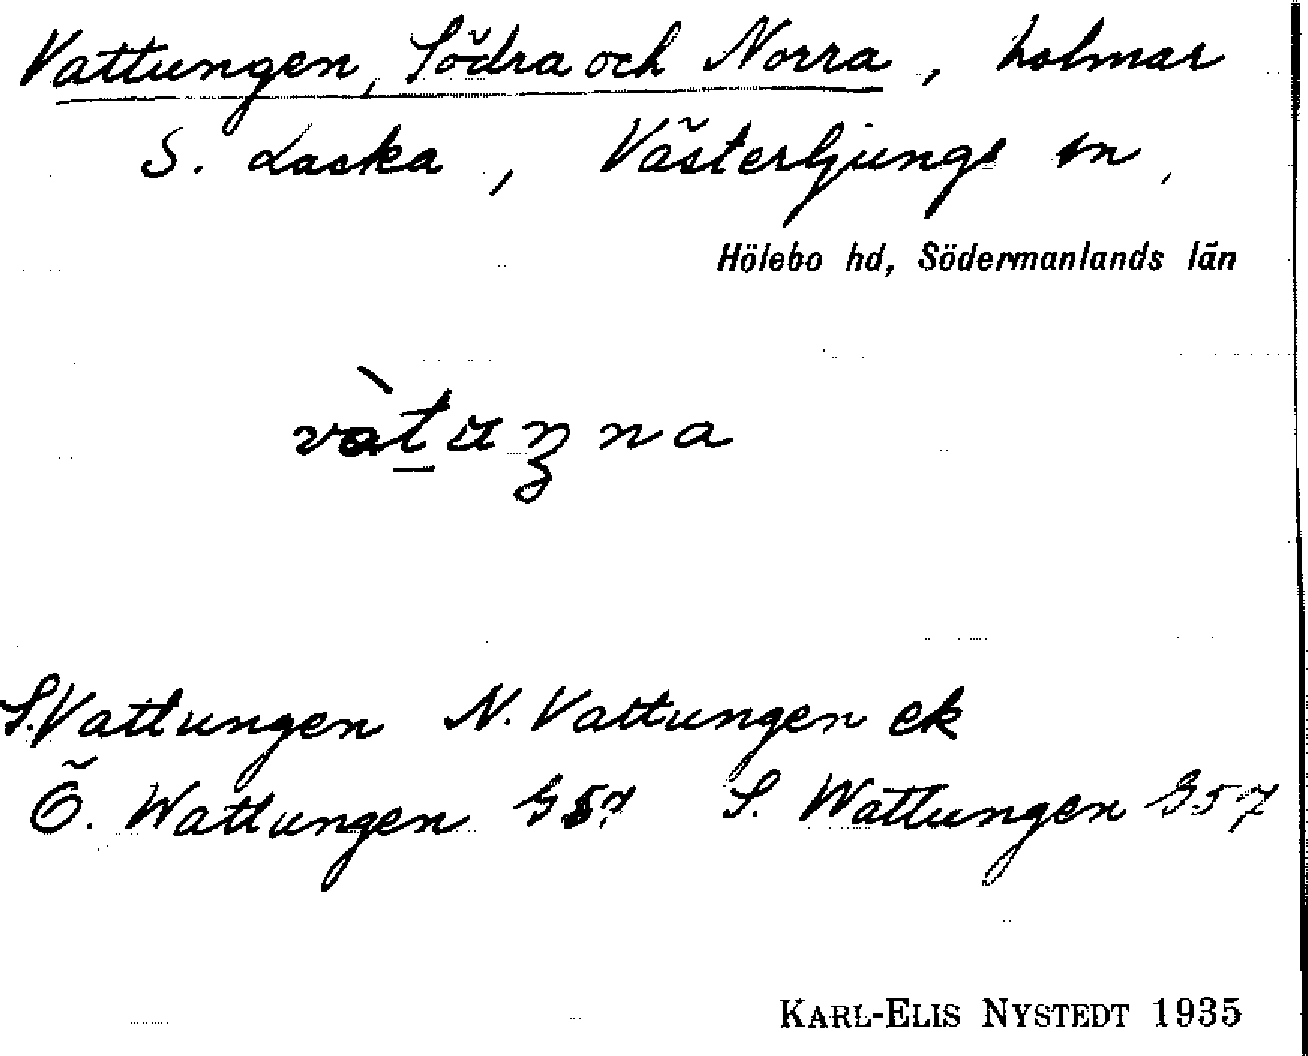 Vattungen, Södra och Norra, holmar
S. Lacka, Västerljungs sn,
Hölebo hd, Södermanlands län
S. Vattungen N. Vattungen ek
Ö. Wattungen G57 S. Wattungen G57
KARL-ELIS NYSTEDT 1935